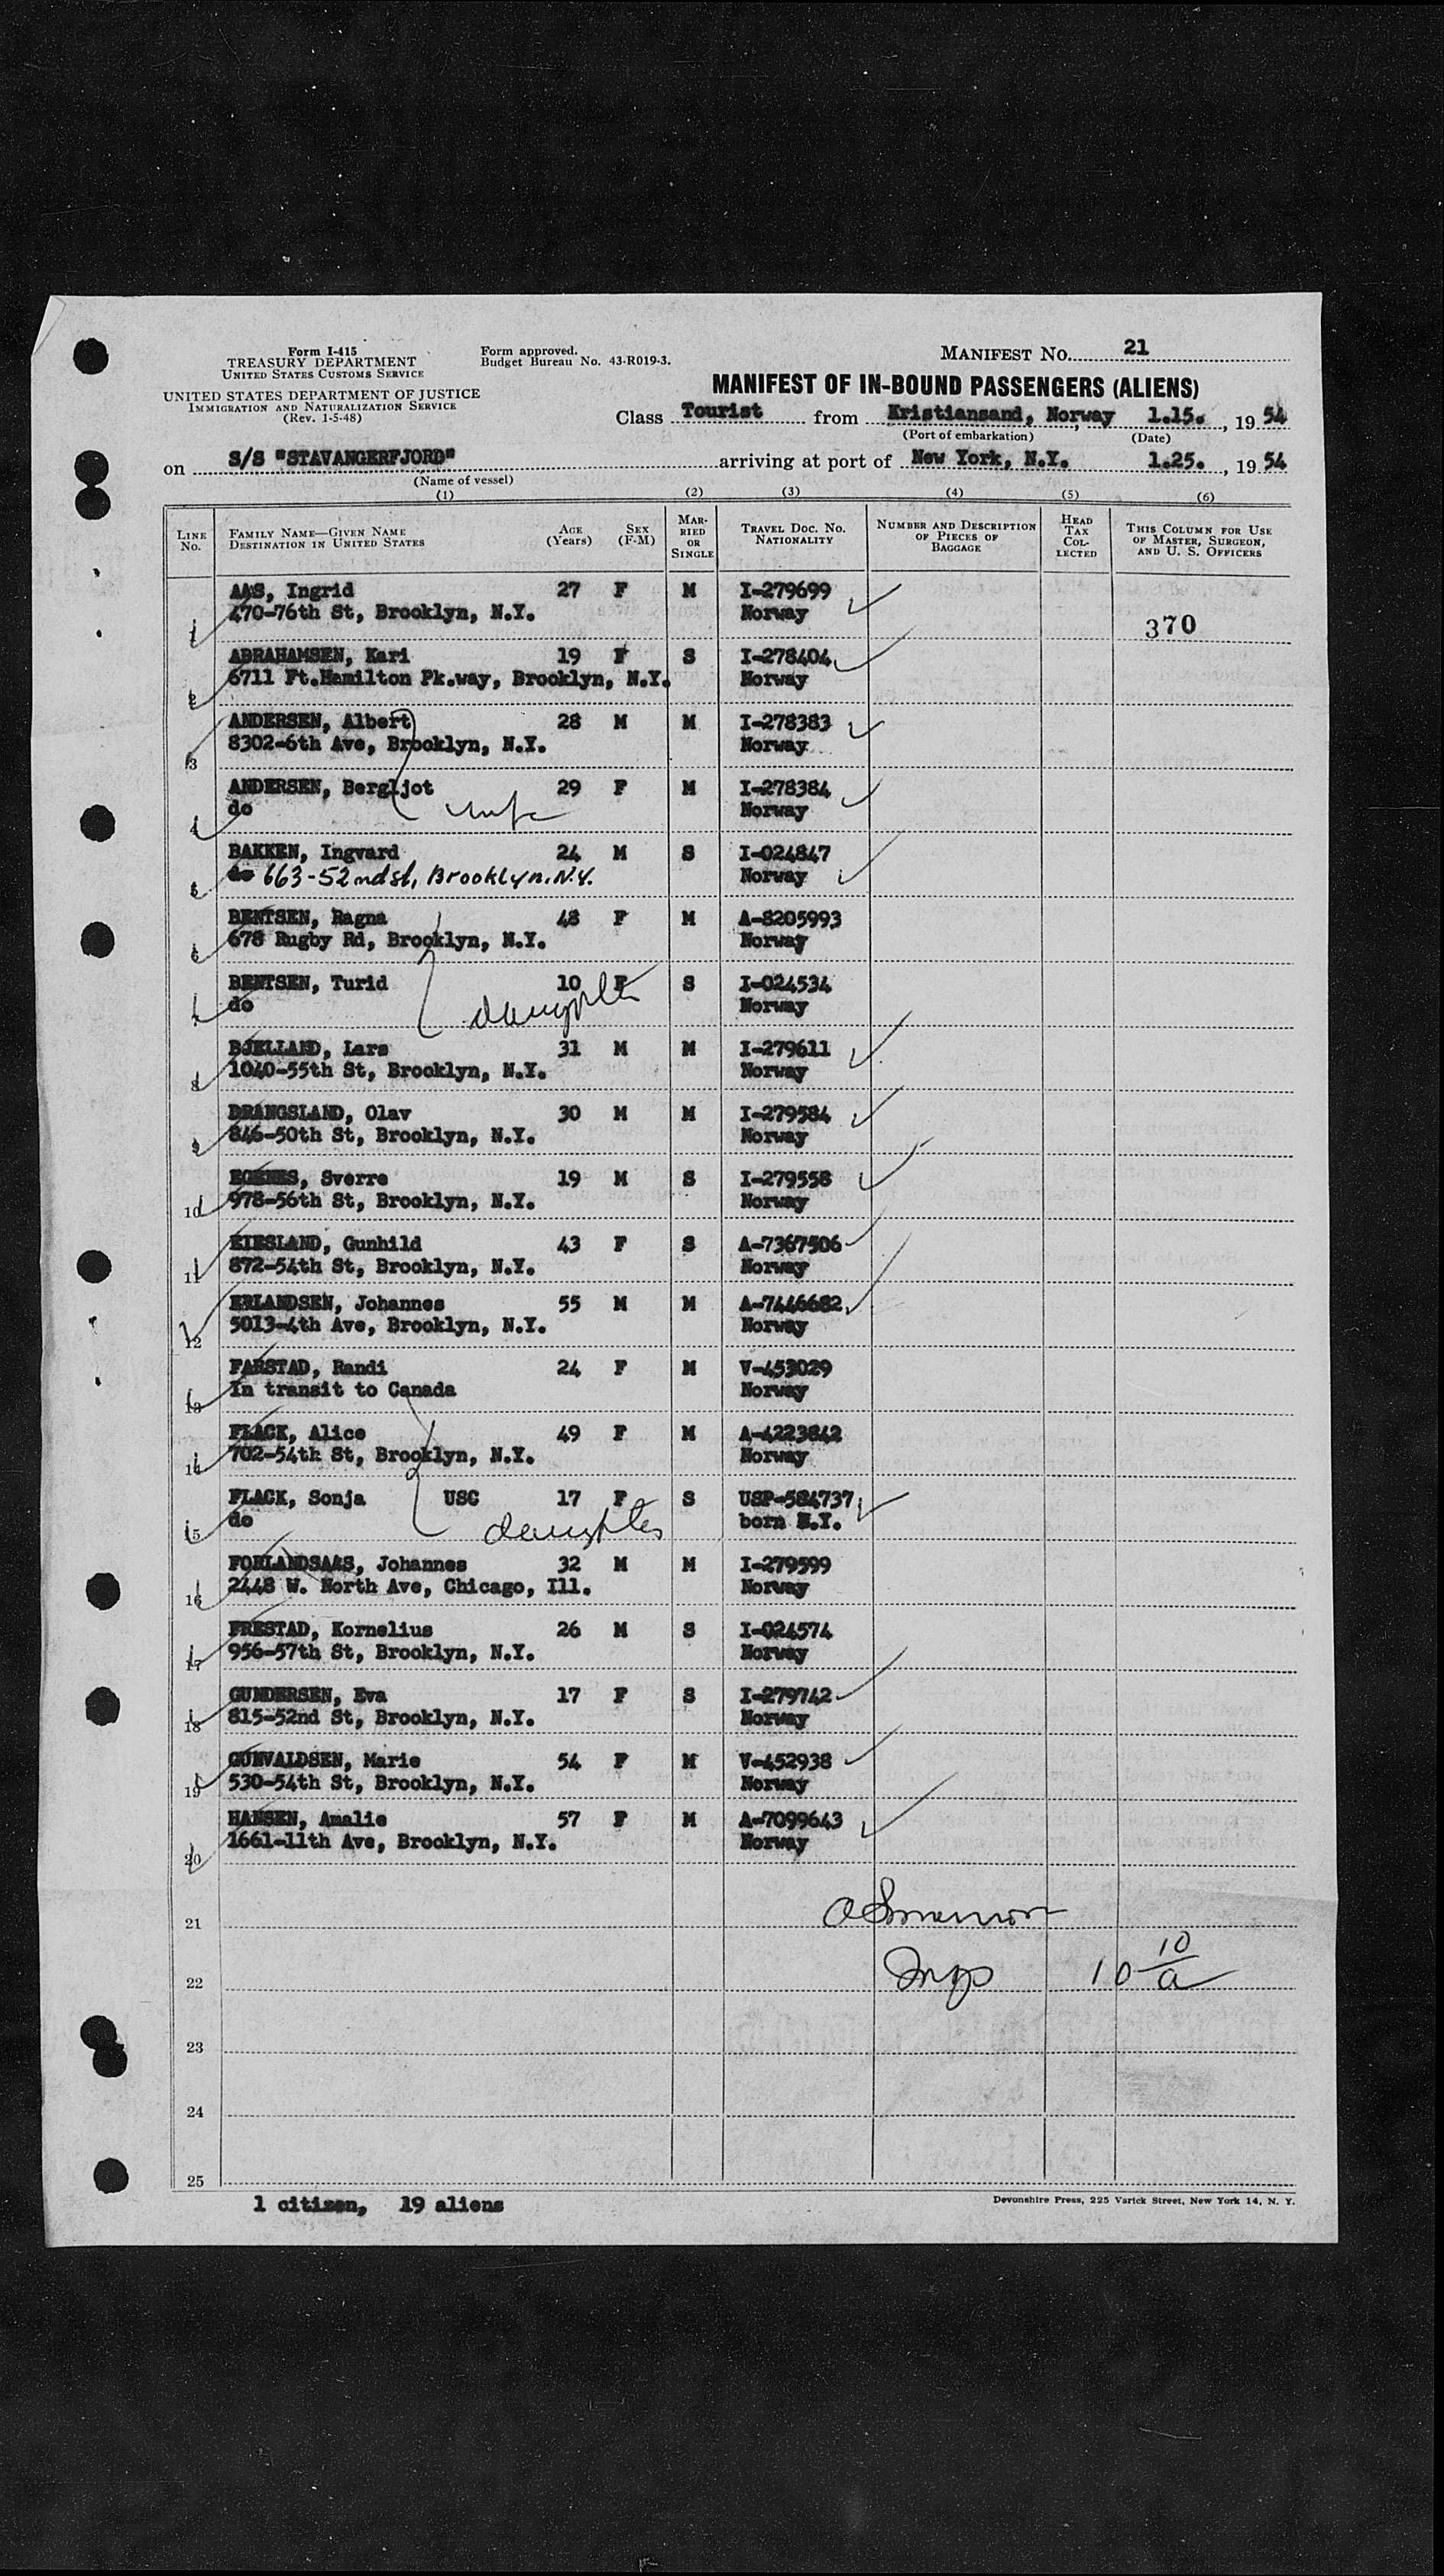 Form I-415
TREASURY DEPARTMENT
UNITED STATES CUSTOMS SERVICE
UNITED STATES DEPARTMENT OF JUSTICE
IMMIGRATION AND NATURALIZATION SERVICE
(Rev. 1-5-48)
Form approved.
Budget Bureau No. 43-R019-3.
MANIFEST No. 21
MANIFEST OF IN-BOUND PASSENGERS (ALIENS)
Class Tourist from Kristiansand, Norway 1.15., 19 54
(Port of embarkation) (Date)
on S/S "STAVANGERFJORD" arriving at port of New York, N.Y. 1.25., 19 54
(Name of vessel)
(1) (2) (3) (4) (5) (6)
LINE No. FAMILY NAME—GIVEN NAME DESTINATION IN UNITED STATES AGE (Years) SEX (F-M) MARRIED OR SINGLE TRAVEL DOC. NO. NATIONALITY NUMBER AND DESCRIPTION OF PIECES OF BAGGAGE HEAD TAX COLLECTED THIS COLUMN FOR USE OF MASTER, SURGEON, AND U. S. OFFICERS
AAS, Ingrid 27 F M I-279699
1 470-76th St, Brooklyn, N.Y. Norway 370
ABRAHAMSEN, Kari 19 F S I-278404
2 6711 Ft.Hamilton Pk.way, Brooklyn, N.Y. Norway
ANDERSEN, Albert 28 M M I-278383
3 8302-6th Ave, Brooklyn, N.Y. Norway
ANDERSEN, Bergljot 29 F M I-278384
4 do wife Norway
BAKKEN, Ingvard 24 M S I-024847
5 do 663-52nd st, Brooklyn. N.Y. Norway
BENTSEN, Ragna 48 F M A-8205993
6 678 Rugby Rd, Brooklyn, N.Y. Norway
BENTSEN, Turid 10 F S I-024534
7 do daughter Norway
BJELLAND, Lars 31 M M I-279611
8 1040-55th St, Brooklyn, N.Y. Norway
DRANGSLAND, Olav 30 M M I-279584
9 846-50th St, Brooklyn, N.Y. Norway
EGENES, Sverre 19 M S I-279558
10 978-56th St, Brooklyn, N.Y. Norway
EIESLAND, Gunhild 43 F S A-7367506
11 872-54th St, Brooklyn, N.Y. Norway
ERLANDSEN, Johannes 55 M M A-7446682
12 5013-4th Ave, Brooklyn, N.Y. Norway
FARSTAD, Randi 24 F M V-453029
13 In transit to Canada Norway
FLACK, Alice 49 F M A-4223842
14 702-54th St, Brooklyn, N.Y. Norway
FLACK, Sonja USC 17 F S USP-584737
15 do daughter born N.Y.
FORLANDSAAS, Johannes 32 M M I-279599
16 2448 W. North Ave, Chicago, Ill. Norway
FRESTAD, Kornelius 26 M S I-024574
17 956-57th St, Brooklyn, N.Y. Norway
GUNDERSEN, Eva 17 F S I-279742
18 815-52nd St, Brooklyn, N.Y. Norway
GUNVALDSEN, Marie 54 F M V-452938
19 530-54th St, Brooklyn, N.Y. Norway
HANSEN, Amalie 57 F M A-7099643
1661-11th Ave, Brooklyn, N.Y. Norway
20
21
22 10 10/a
23
24
25
1 citizen, 19 aliens
Devonshire Press, 225 Varick Street, New York 14, N. Y.